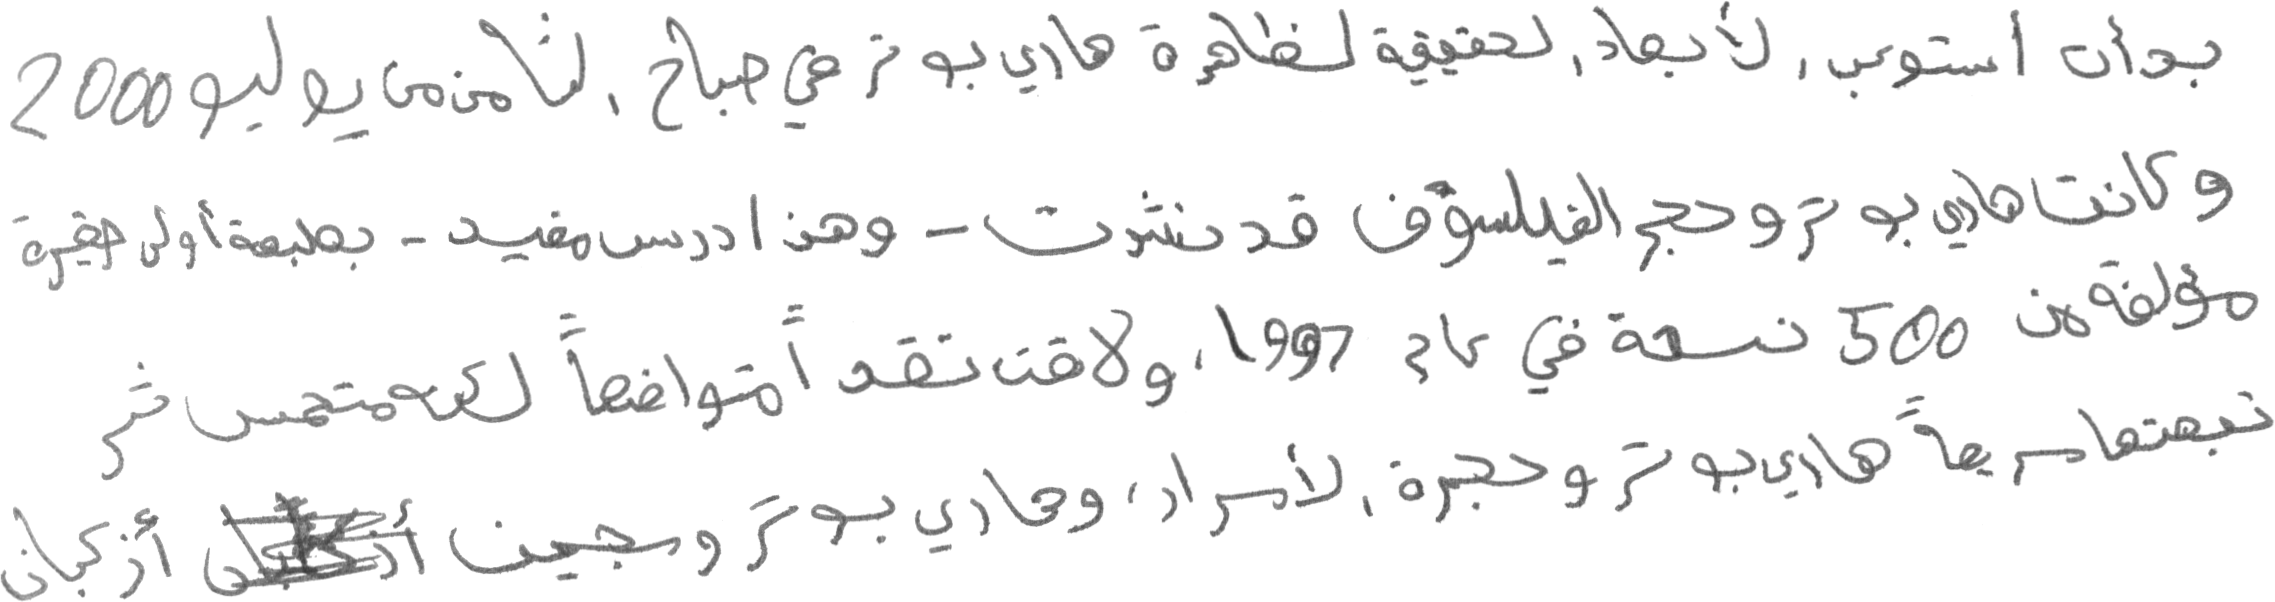 بدأت أستوعب الأبعاد الحقيقية لظاهرة هاري بوتر في صباح الثامن من يوليو 2000
وكانت هاري بوتر وحجر الفيلسوف قد نشرت - وهذا درس مفيد - بطبعة أولى حقيرة
مؤلفة من 500 نسخة في عام 1997، ولاقت نقداً متواضعاً لكنه متحمس ثم
تبعتها سريعاً هاري بوتر وحجرة الأسرار، وهاري بوتر وسجين أزكبان